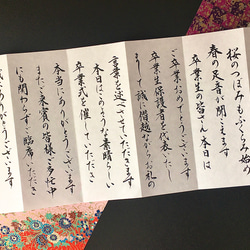 桜のつぼみもふくらみ始め
春の足音が聞こえます
卒業生の皆さん本日は
ご卒業おめでとうございます
卒業生保護者を代表いたし
まして誠に僭越ながらお礼の
言葉を述べさせていただきます
本日はこのような素晴らしい
卒業式を催していただき
本当にありがとうございます
またご来賓の皆様ご多忙中
にも関わらずご臨席いただき
ありがとうございます